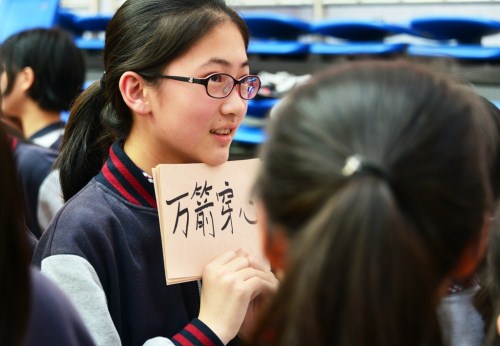 万箭穿心